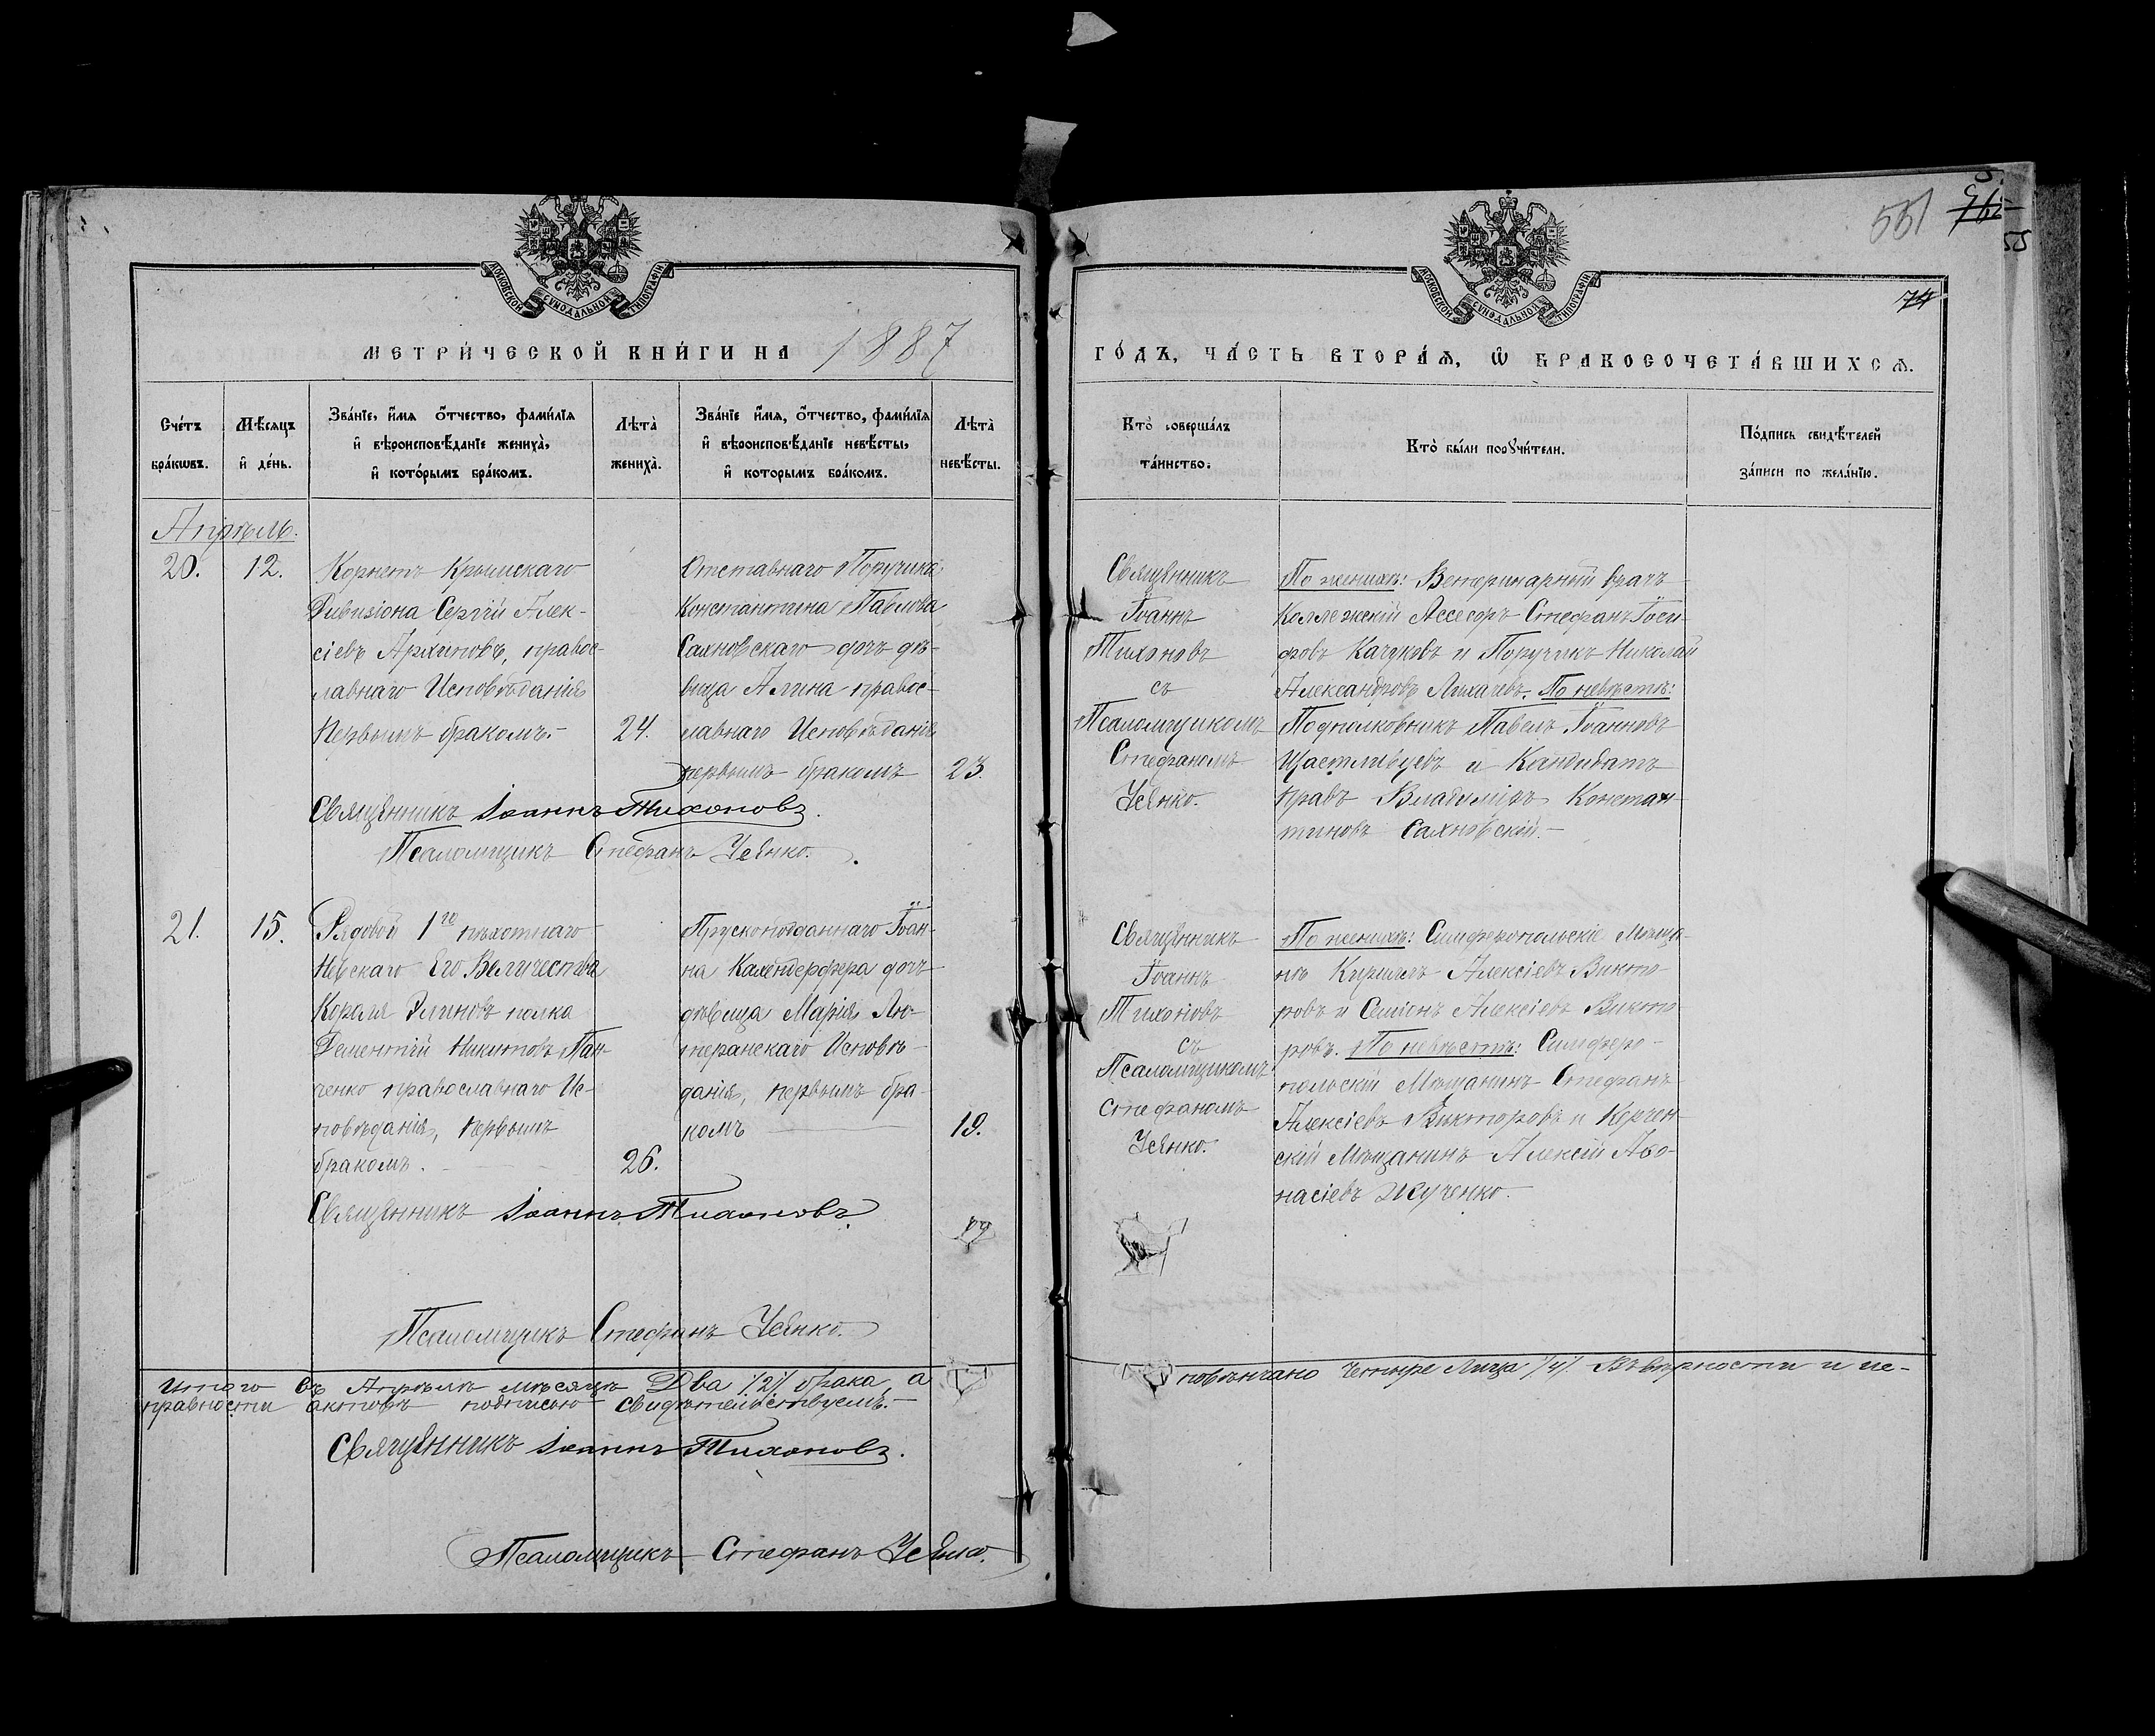 551
74
55
МОСКОВСКОЙ СУНОДАЛЬНОЙ ТИПОГРАФІИ
МОСКОВСКОЙ СУНОДАЛЬНОЙ ТИПОГРАФІИ
МЕТРИ́ЧЕСКОЙ КНИ́ГИ НА 1887
ГО́ДЪ, ЧА́СТЬ ВТОРА́Ѧ, Ѽ БРАКОСОЧЕТА́ВШИХСѦ.
Сче́тъ бра́кѡвъ.
Мѣ́сяцъ и҆ де́нь.
Зва́нїе, и҆́мя ѻ҆́тчество, фами́лїя
и҆ вѣроисповѣ́данїе жениха̀,
и҆ кото́рымъ бра́комъ.
Лѣ́та̀ жениха̀.
Зва́нїе и҆́мя, ѻ҆́тчество, фами́лїя
и҆ вѣроисповѣ́данїе невѣ́сты,
и҆ которымъ бра́комъ.
Лѣ́та̀ невѣ́сты.
Кто̀ соверша́лъ та́инство.
Кто̀ бы́ли порꙋчи́тели.
По́дпись свидѣ́телей
за́писи по жела́нїю.
Апрѣль.
20.
12.
Корнетъ Крымскаго
Дивизіона Сергій Алек-
сіевъ Архиповъ, правос-
лавнаго Исповѣданія
Первымъ бракомъ.-
24.
Отставнаго Поручика
Константина Павлова
Сахновскаго дочь дѣ-
вица Алина правос-
лавнаго Исповѣданія
первымъ бракомъ
23.
Священникъ Іоаннъ Тихоновъ.
Псаломщикъ Стефанъ Уѣнко.
Священникъ
Іоаннъ
Тихоновъ
съ
Псаломщикомъ
Стефаномъ
По женихѣ: Ветеринарный врачъ
Коллежскій Ассесоръ Стефанъ Іоси-
фовъ Качуковъ и Поручикъ Николай
Александровъ Лихачевъ. По невѣстѣ:
Подполковникъ Павелъ Іоанновъ
Щастливцевъ и Кандидатъ
правъ Владиміръ Констан-
тиновъ Сахновскій.-
21.
15.
Рядовой 1го пѣхотнаго
Невскаго Его Величества
Короля Элиновъ полка
Дементій Никитовъ Пан-
ченко православнаго Ис-
повѣданія, первымъ
бракомъ.
26.
Прускоподданнаго Іоан-
на Календерфера дочь
дѣвица Марія Лю-
теранскаго Исповѣ-
данія, первымъ бра-
комъ
19.
Священникъ Іоаннъ Тихоновъ.
Псаломщикъ Стефанъ
Священникъ
Іоаннъ
Тихоновъ
съ
Псаломщикомъ
Стефаномъ
По женихѣ: Симферопольскіе Мѣща-
не Кирилъ Алексіевъ Викто-
ровъ и Семіонъ Алексіевъ Викто-
ровъ. По невѣстѣ: Симферо-
польскій Мѣщанинъ Стефанъ
Алексіевъ Викторовъ и Керчен-
скій Мѣщанинъ Алексій Аѳо-
насіевъ Жученко.
Итого въ Апрѣлѣ мѣсяцѣ Два /2/ брака, а
повѣнчано Четыре Лица /4/. Въ вѣрности и ис-
правности актовъ подписью свидѣтельствуемъ.-
Священникъ Іоаннъ Тихоновъ.
Псаломщикъ Стефанъ